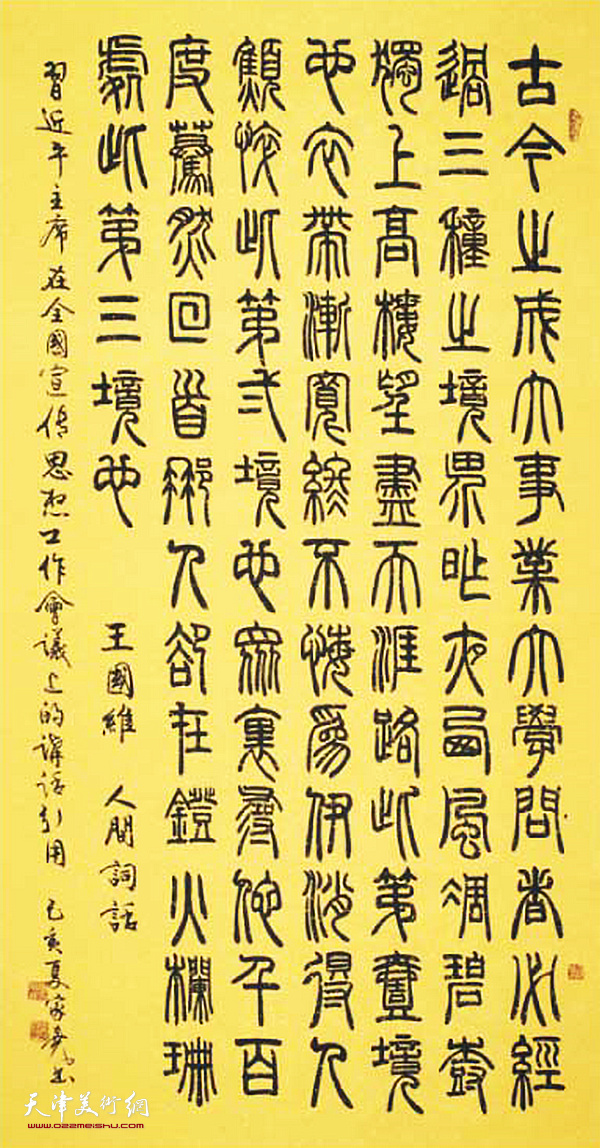 古今之成大事業大學問者必經
過三種之境界昨夜西風凋碧樹
獨上高樓望盡天涯路此第壹境
也衣帶漸寬終不悔為伊消得人
顦悴此第弍境也眾裏尋他千百
度驀然回首那人卻在鐙火欄珊
處此第三境也
王國維 人間詞話
習近平主席在全國宣传思想工作會議上的講話引用 己亥夏家
天津美術網
www.022meishu.com